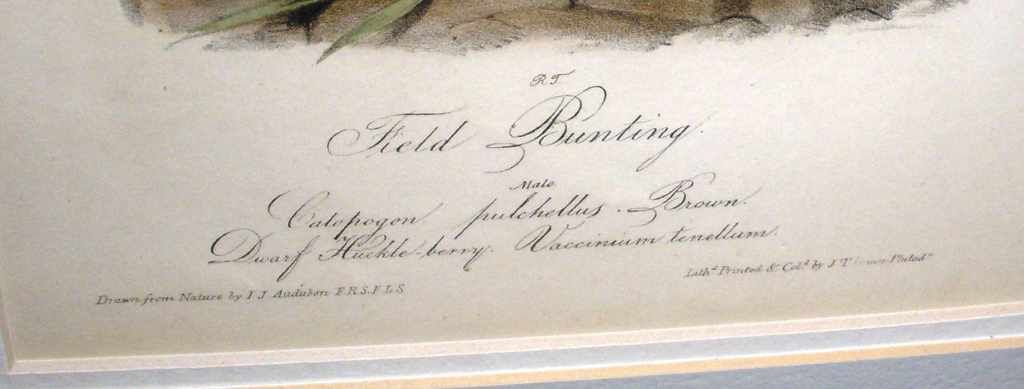 R T
Field Bunting.
Male.
Calopogon pulchellus. Brown.
Dwarf Huckle-berry. Vaccinium tenellum.
Drawn from Nature by J. J. Audubon F.R.S.F.L.S.
Lith.d Printed & Col.d by J. T. Philad.a